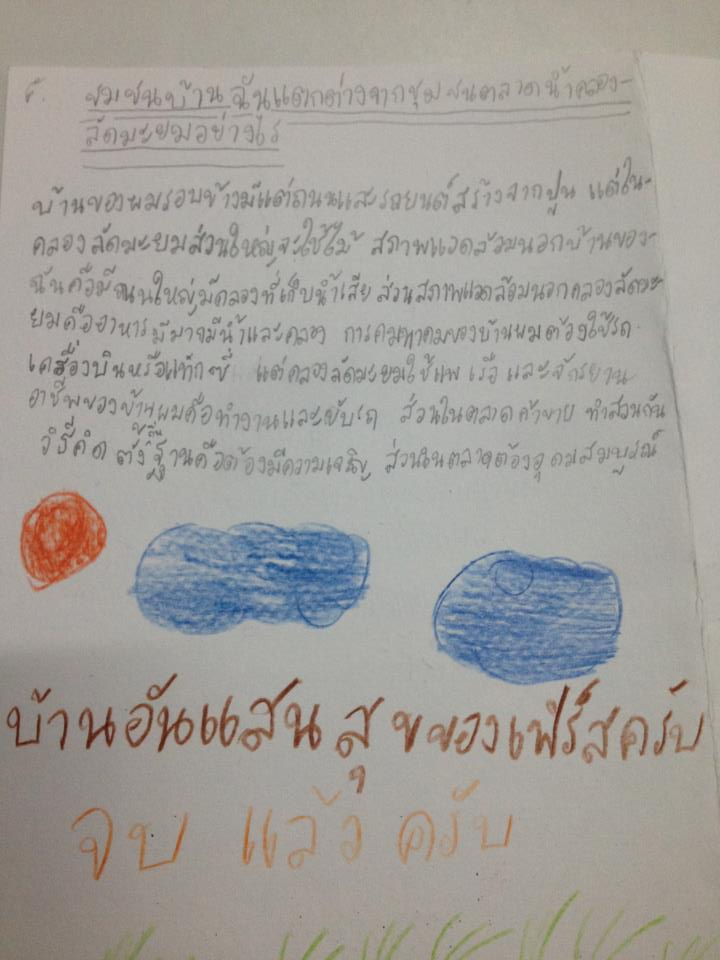 ชุมชนบ้านฉันแตกต่างจากชุมชนตลาดน้ำคลอง-
ลัดมะยมอย่างไร
บ้านของผมรอบข้างมีแต่ถนนและรถยนต์สร้างจากปูน แต่ใน-
คลองลัดมะยมส่วนใหญ่จะใช้ไม้ สภาพแวดล้อมนอกบ้านของ-
ฉันคือมีถนนใหญ่มีคลองที่เก็บน้ำเสีย ส่วนสภาพแวดล้อมนอกคลองลัดมะ-
ยมคืออาหาร มีน้ำและคลอง การคมนาคมของบ้านผมต้องใช้รถ
เครื่องบินหรือแท็กซี่ แต่คลองลัดมะยมใช้แพ เรือ และจักรยาน
อาชีพของบ้านผมคือทำงานและขับรถ ส่วนในตลาดค้าขาย ทำสวนกัน
วิธีคิด ตั้งถิ่นฐานคือต้องมีความเจริญ ส่วนในตลาดต้องอุดมสมบูรณ์
บ้านอันแสนสุขของเฟิร์สครับ
จบ แล้ว ครับ